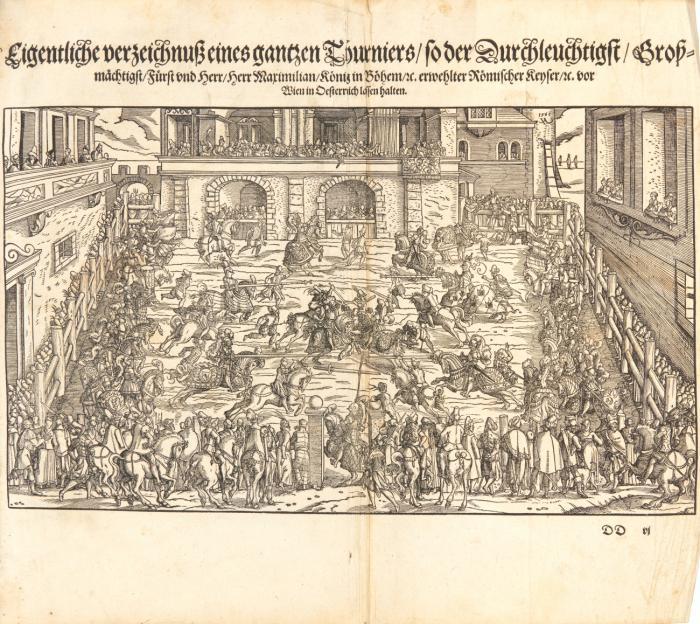 Eigentliche verzeichnuß eines gantzen Thurniers / so der Durchleuchtigst / Groß-
mächtigst / Fürst vnd Herr / Herr Maximilian / König in Böhem / ꝛc. erwehlter Römischer Keyser / ꝛc. vor
Wien in Oesterrich lassen halten.
1565
DD vj